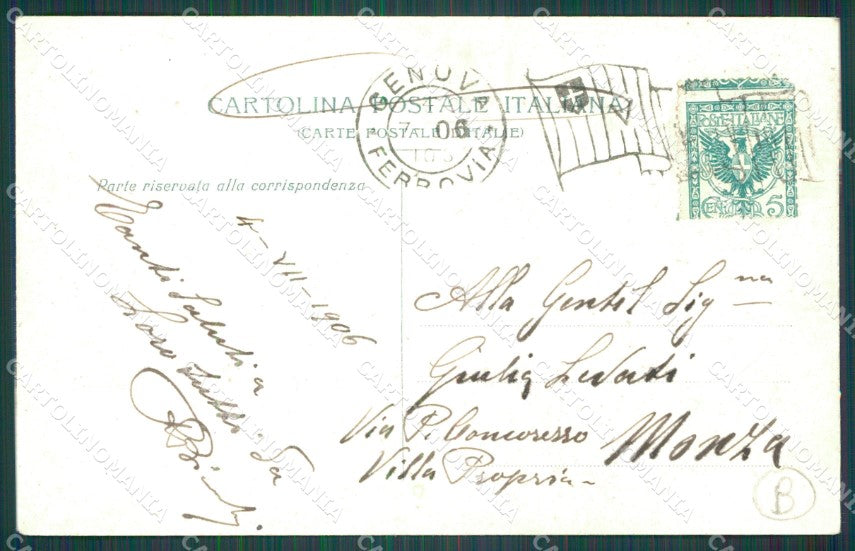 CARTOLINA POSTALE ITALIANA
(CARTE POSTALE D'ITALIE)
GENOVA
06
FERROVIA
POSTE ITALIANE
CENT. 5
Parte riservata alla corrispondenza
4-VII-1906
Tanti Saluti a
Loro tutti da
Alla Gentil Sigⁿᵃ
Giulia Levati
Via P. Concoresso Monza
Villa Propria-
B
CARTOLINOMANIA